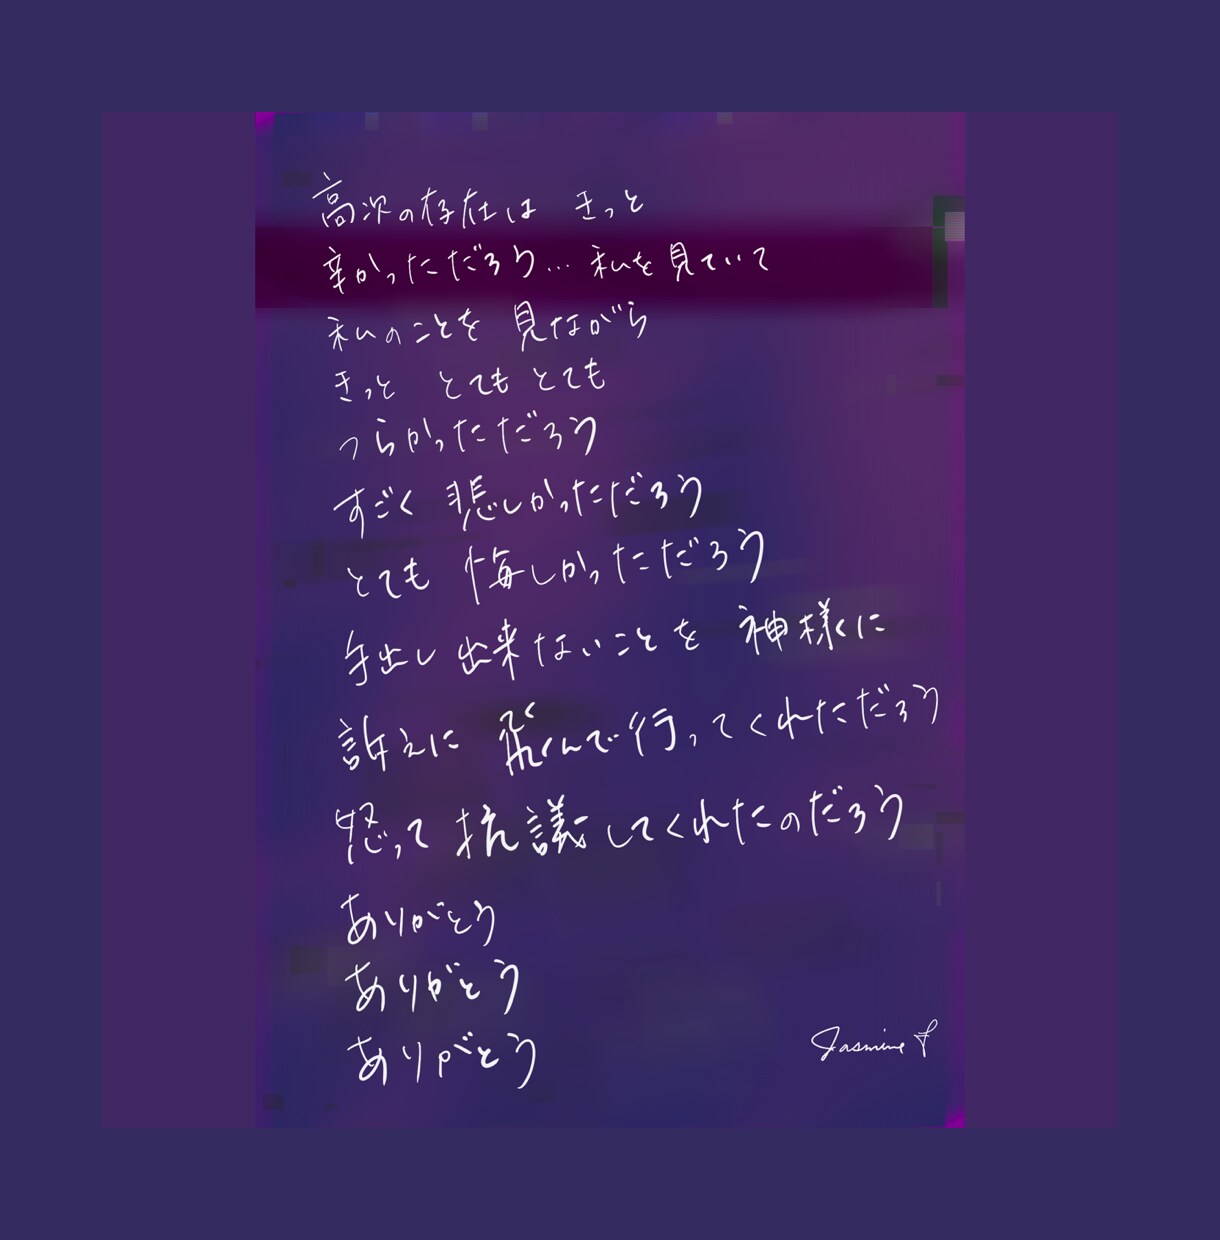 高次の存在は きっと
辛かっただろう… 私を見ていて
私のことを 見ながら
きっと とてもとても
つらかっただろう
すごく 悲しかっただろう
とても 悔しかっただろう
手出し出来ないことを 神様に
訴えに 飛んで行ってくれただろう
怒って 抗議してくれたのだろう
ありがとう
ありがとう
ありがとう
Jasmine F